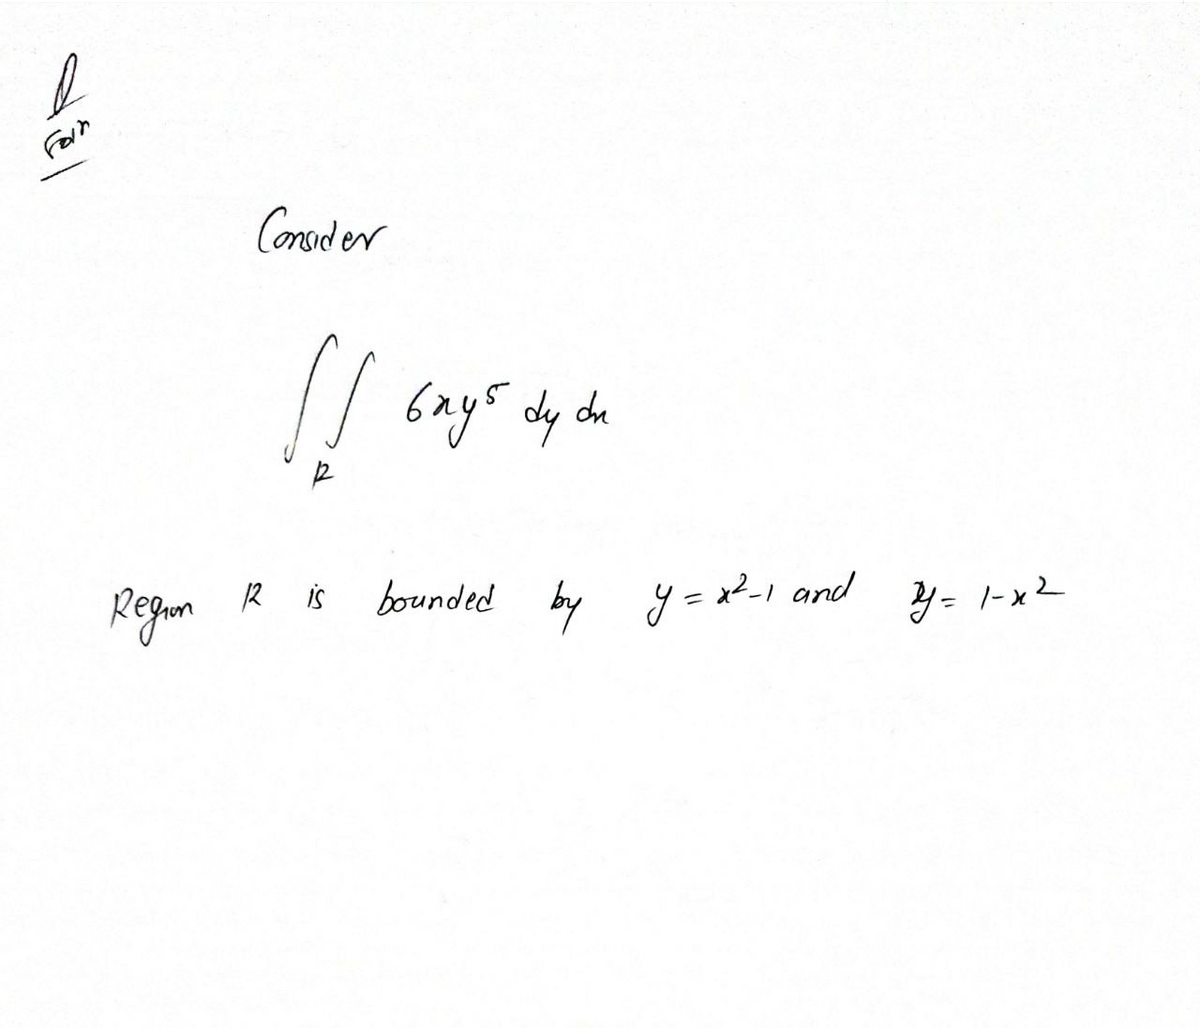 Consider
∬_R 6xy⁵ dy dx
Region R is bounded by y = x²-1 and y = 1-x²